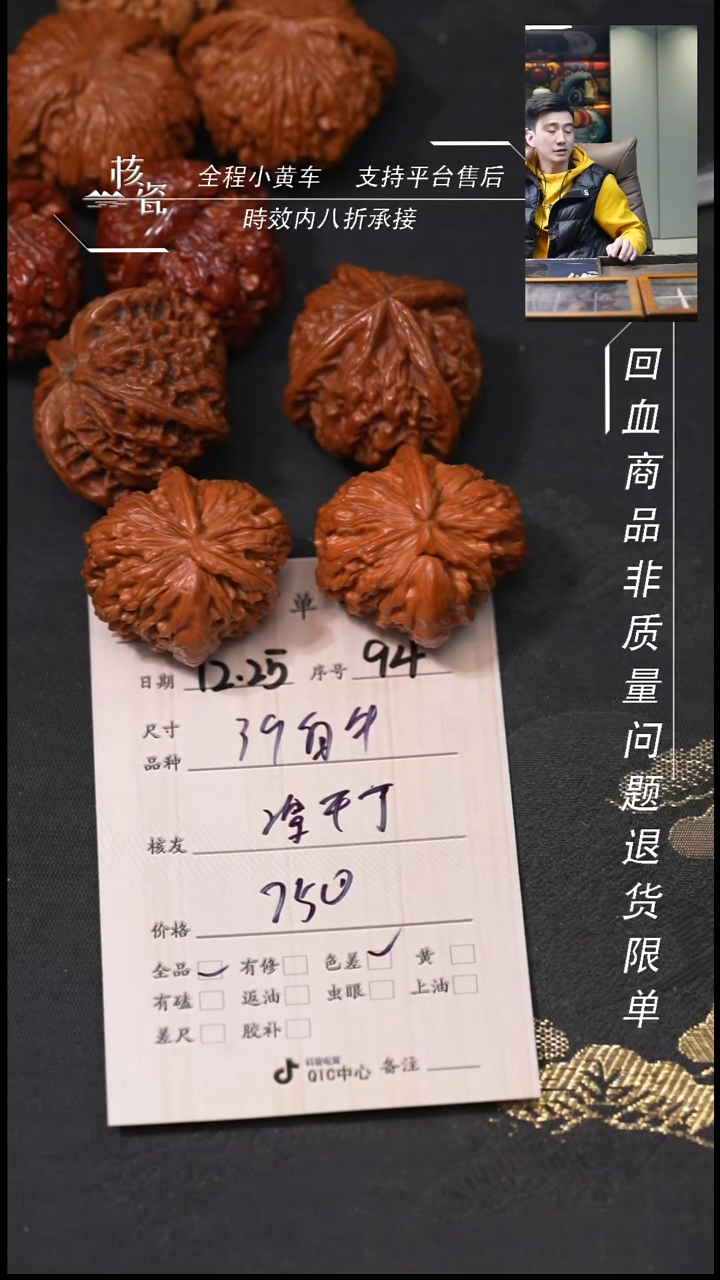 核瓷
全程小黄车 支持平台售后
時效内八折承接
回血商品非质量问题退货限单
单
日期 12.25 序号 94
尺寸
品种 39白牛
核友
价格 750
全品 有修 色差 黄
有磕 返油 虫眼 上油
差尺 胶补
抖音电商
QIC中心 备注